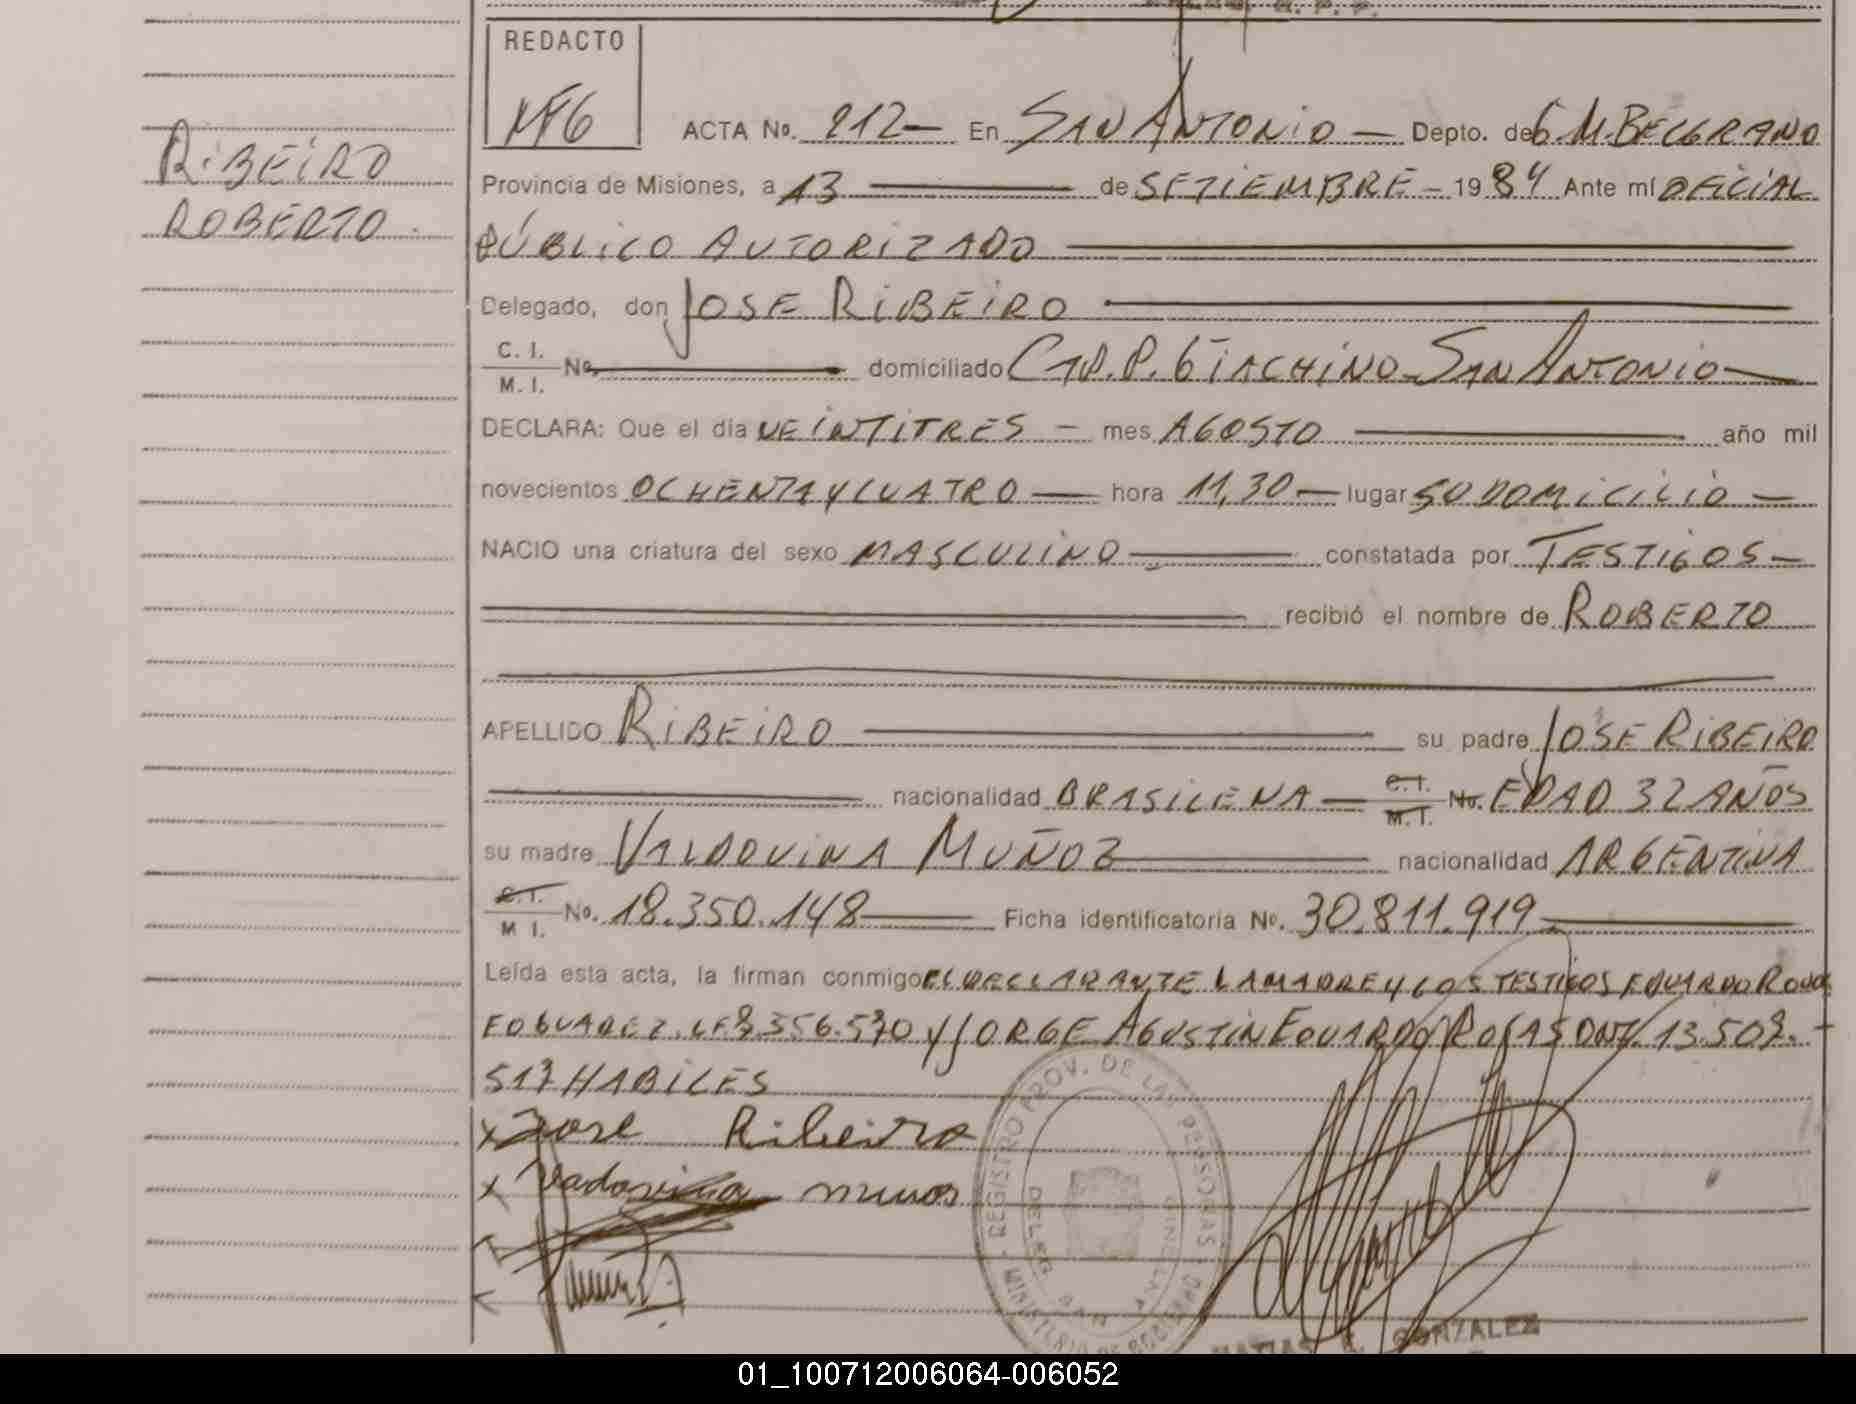 REDACTO
RIBEIRO
ROBERTO.
ACTA No. 212— En SAN ANTONIO — Depto. de G.M.BELGRANO
Provincia de Misiones, a 13 — de SETIEMBRE — 1984 Ante mí OFICIAL
PÚBLICO AUTORIZADO
Delegado, don JOSE RIBEIRO
C. I.
M. I. No. — domiciliado CAP. P. GIACHINO - SAN ANTONIO —
DECLARA: Que el día VEINTITRES — mes AGOSTO — año mil
novecientos OCHENTA Y CUATRO — hora 11,30 — lugar SU DOMICILIO —
NACIO una criatura del sexo MASCULINO — constatada por TESTIGOS —
recibió el nombre de ROBERTO
APELLIDO RIBEIRO — su padre JOSE RIBEIRO
nacionalidad BRASILENA — C.I. M.I. No. EDAD 32 AÑOS
su madre VALDOVINA MUÑOZ — nacionalidad ARGENTINA
C.I. M I. No. 18.350.148 — Ficha identificatoria No. 30.811.919 —
Leída esta acta, la firman conmigo EL DECLARANTE LA MADRE Y LOS TESTIGOS EDUARDO
Y JORGE AGUSTIN EDUARDO ROJAS DNI. 13.507.-
517 HABILES
x Jose Ribeiro
x Vadovina munos
REGISTRO PROV. DE LAS PERSONAS
GONZALEZ
01_100712006064-006052